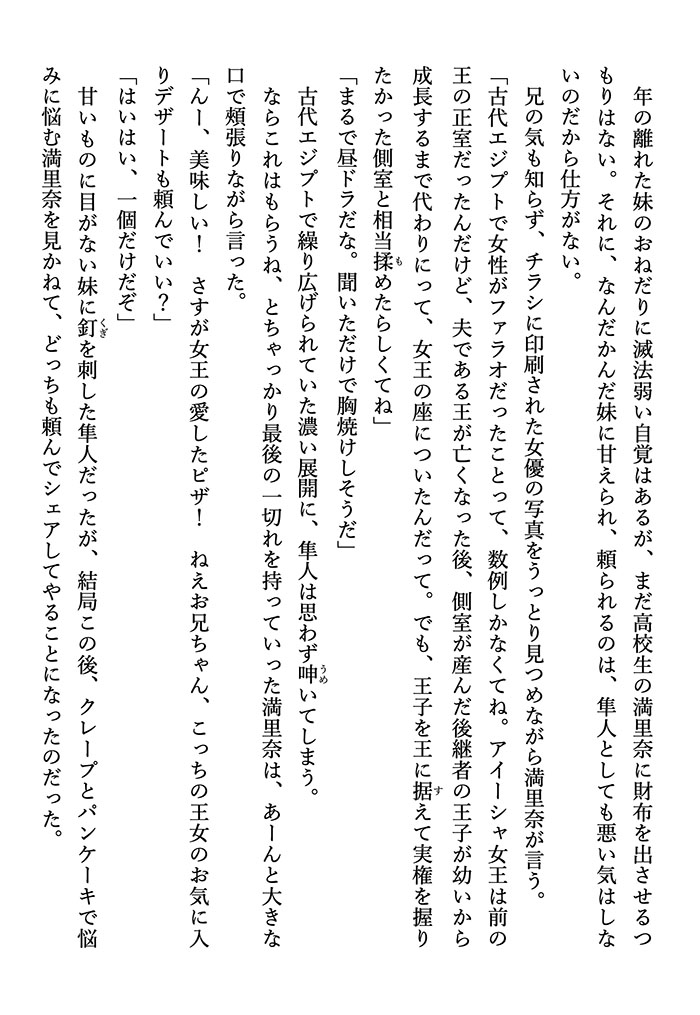 年の離れた妹のおねだりに滅法弱い自覚はあるが、まだ高校生の満里奈に財布を出させるつ
もりはない。それに、なんだかんだ妹に甘えられ、頼られるのは、隼人としても悪い気はしな
いのだから仕方がない。
兄の気も知らず、チラシに印刷された女優の写真をうっとり見つめながら満里奈が言う。
「古代エジプトで女性がファラオだったことって、数例しかなくてね。アイーシャ女王は前の
王の正室だったんだけど、夫である王が亡くなった後、側室が産んだ後継者の王子が幼いから
成長するまで代わりにって、女王の座についたんだって。でも、王子を王に据えて実権を握り
たかった側室と相当揉めたらしくてね」
「まるで昼ドラだな。聞いただけで胸焼けしそうだ」
古代エジプトで繰り広げられていた濃い展開に、隼人は思わず呻いてしまう。
ならこれはもらうね、とちゃっかり最後の一切れを持っていった満里奈は、あーんと大きな
口で頬張りながら言った。
「んー、美味しい！　さすが女王の愛したピザ！　ねえお兄ちゃん、こっちの王女のお気に入
りデザートも頼んでいい？」
「はいはい、一個だけだぞ」
甘いものに目がない妹に釘を刺した隼人だったが、結局この後、クレープとパンケーキで悩
みに悩む満里奈を見かねて、どっちも頼んでシェアしてやることになったのだった。